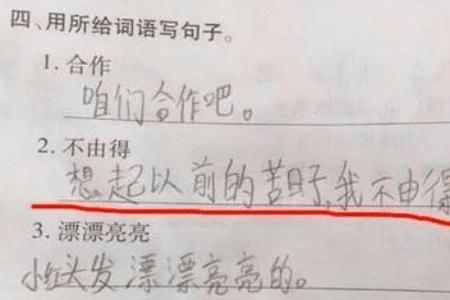 四、用所给词语写句子。
1. 合作
咱们合作吧。
2. 不由得
想起以前的苦日子,我不由得
3. 漂漂亮亮
小红头发漂漂亮亮的。